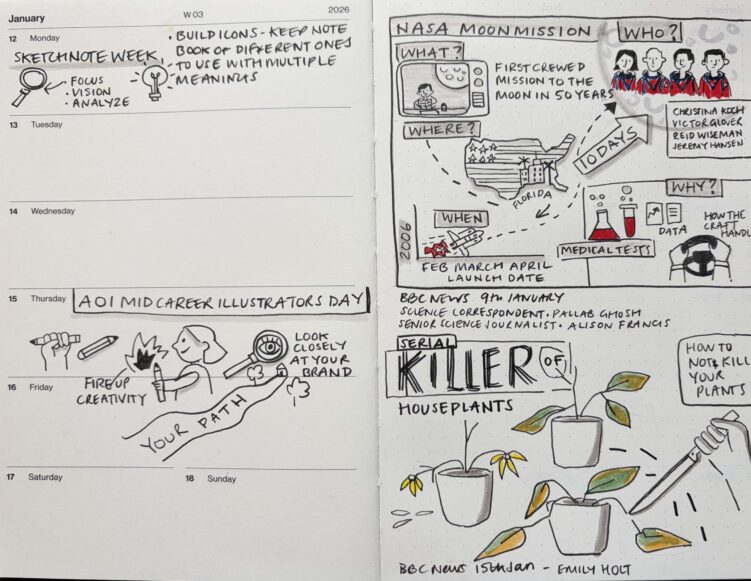 January
W 03
2026
12 Monday
SKETCHNOTE WEEK
• BUILD ICONS - KEEP NOTE
BOOK OF DIFFERENT ONES
TO USE WITH MULTIPLE
MEANINGS
• FOCUS
• VISION
• ANALYZE
13 Tuesday
14 Wednesday
15 Thursday
AOI MID CAREER ILLUSTRATORS DAY
LOOK
CLOSELY
AT YOUR
BRAND
16 Friday
FIRE UP
CREATIVITY
YOUR PATH
17 Saturday
18 Sunday
NASA MOON MISSION
WHAT?
FIRST CREWED
MISSION TO THE
MOON IN 50 YEARS
WHO?
CHRISTINA KOCH
VICTOR GLOVER
REID WISEMAN
JEREMY HANSEN
WHERE?
FLORIDA
10 DAYS
WHEN
2006
FEB MARCH APRIL
LAUNCH DATE
WHY?
MEDICAL TESTS
DATA
HOW THE
CRAFT
HANDL
BBC NEWS 9th JANUARY
SCIENCE CORRESPONDENT. PALLAB GHOSH
SENIOR SCIENCE JOURNALIST. ALISON FRANCIS
SERIAL
KILLER OF
HOUSEPLANTS
HOW TO
NOT KILL
YOUR
PLANTS
BBC NEWS 15th Jan - EMILY HOLT